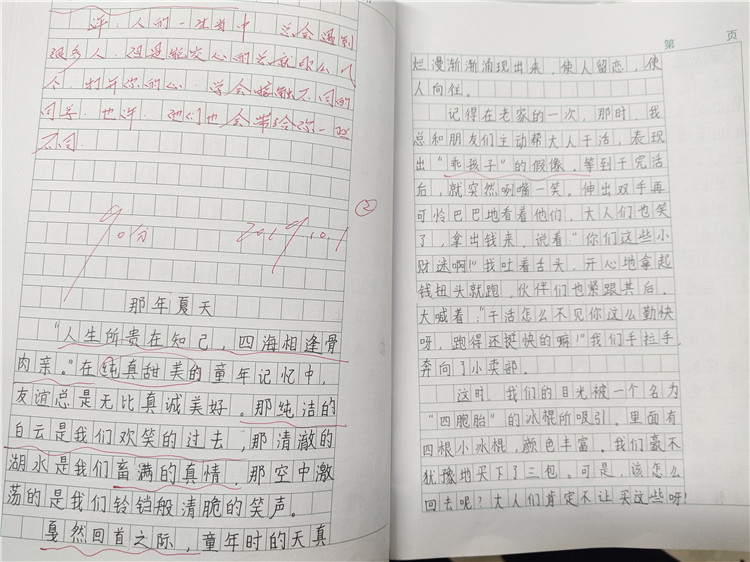 许，人的一生当中，总会遇到
很多人，但是能交心的
个，打开你的心，学会接触不同的
同学，也许，他们也会带给你一些
不同。
②
90分 2019.10.1
那年夏天
“人生所贵在知己，四海相逢骨
肉亲。”在纯真甜美的童年记忆中，
友谊总是无比真诚美好。那纯洁的
白云是我们欢笑的过去，那清澈的
湖水是我们蓄满的真情，那空中激
荡的是我们铃铛般清脆的笑声。
戛然回首之际，童年时的天真
第 页
烂漫渐渐涌现出来，使人留恋，使
人向往。
记得在老家的一次，那时，我
总和朋友们主动帮大人干活，表现
出“乖孩子”的假像，等到干完活
后，就突然咧嘴一笑。伸出双手再
可怜巴巴地看着他们，大人们也笑
了，拿出钱来，说着：“你们这些小
财迷啊！”我吐着舌头，开心地拿起
钱扭头就跑，伙伴们也紧跟其后，
大喊着：“干活怎么不见你这么勤快
呀，跑得还挺快的嘛！”我们手拉手，
奔向了小卖部。
这时，我们的目光被一个名为
“四胞胎”的冰棍所吸引。里面有
四根小冰棍，颜色丰富。我们豪不
犹豫地买下了三包。可是，该怎么
回去呢？大人们肯定不让买这些呀！